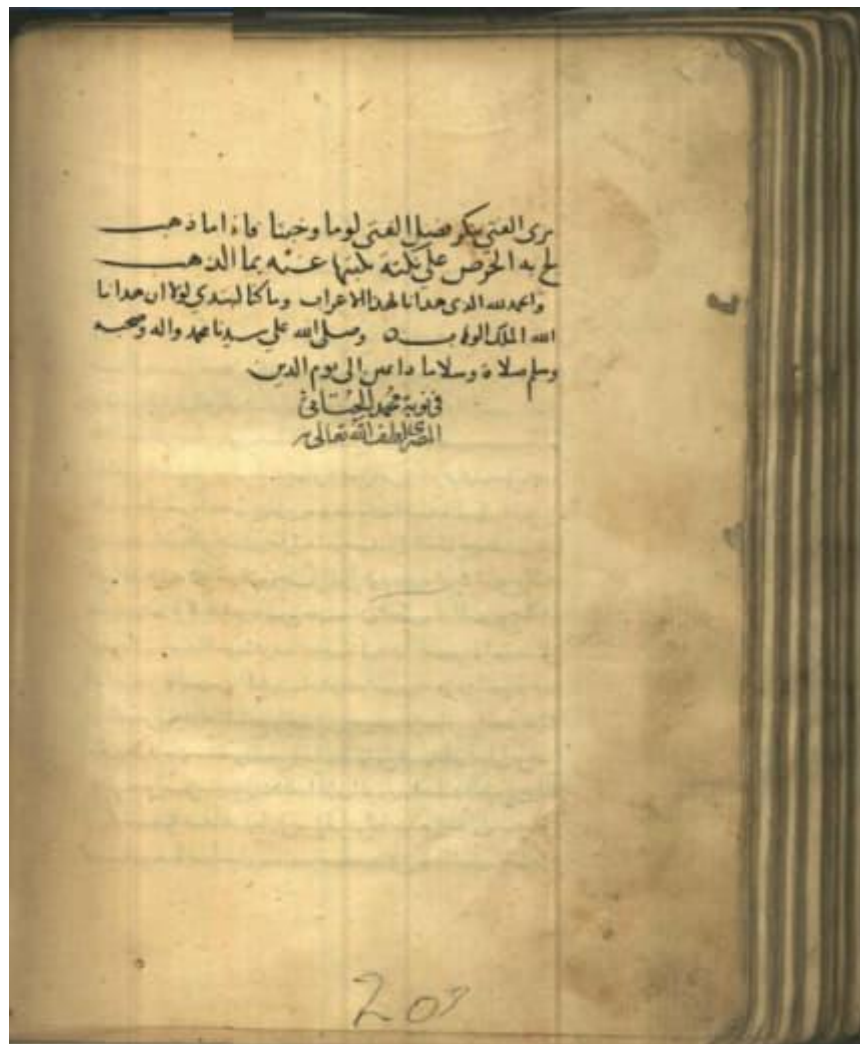 يرى الفتى ينكر فضل الفتى لوما وخبثا فاذا ما ذهب
لج به الحرص على نكتة يكتبها عنه بما الذهب
والحمد لله الذى هدانا لهذا الاعراب وما كنا لنهتدي لولا ان هدانا
الله الملك الوهاب وصلى الله على سيدنا محمد واله وصحبه
وسلم صلاة وسلاما دائمين الى يوم الدين
فى نوبة محمد
المصرى لطف الله تعالى
203